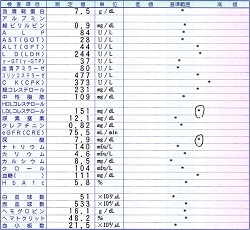 検査項目 測定値 単位 低値 基準範囲 高値
血清総蛋白 7.5 g/dL
アルブミン
総ビリルビン 0.9 mg/dL
ALP 84 U/L
AST(GOT) 28 U/L
ALT(GPT) 44 U/L
LD(LDH) 244 U/L
γ-GT(γ-GTP) 37 U/L
血清アミラーゼ 80 U/L
コリンエステラーゼ 477 U/L
CK(CPK) 231 U/L
中性脂肪 109 mg/dL
HDLコレステロール
LDLコレステロール 151 mg/dL
尿素窒素 12.1 mg/dL
クレアチニン 0.82 mg/dL
eGFR(CRE) 75.5 mL/min
尿酸 7.9 mg/dL
ナトリウム 140 mEq/L
カリウム 4.6 mEq/L
カルシウム 8.5 mg/dL
クロール 104 mEq/L
血糖 111 mg/dL
HbA1c 5.8 %
白血球数 51
赤血球数 533
ヘモグロビン 16.1 g/dL
ヘマトクリット 48.2 %
血小板数 21.5